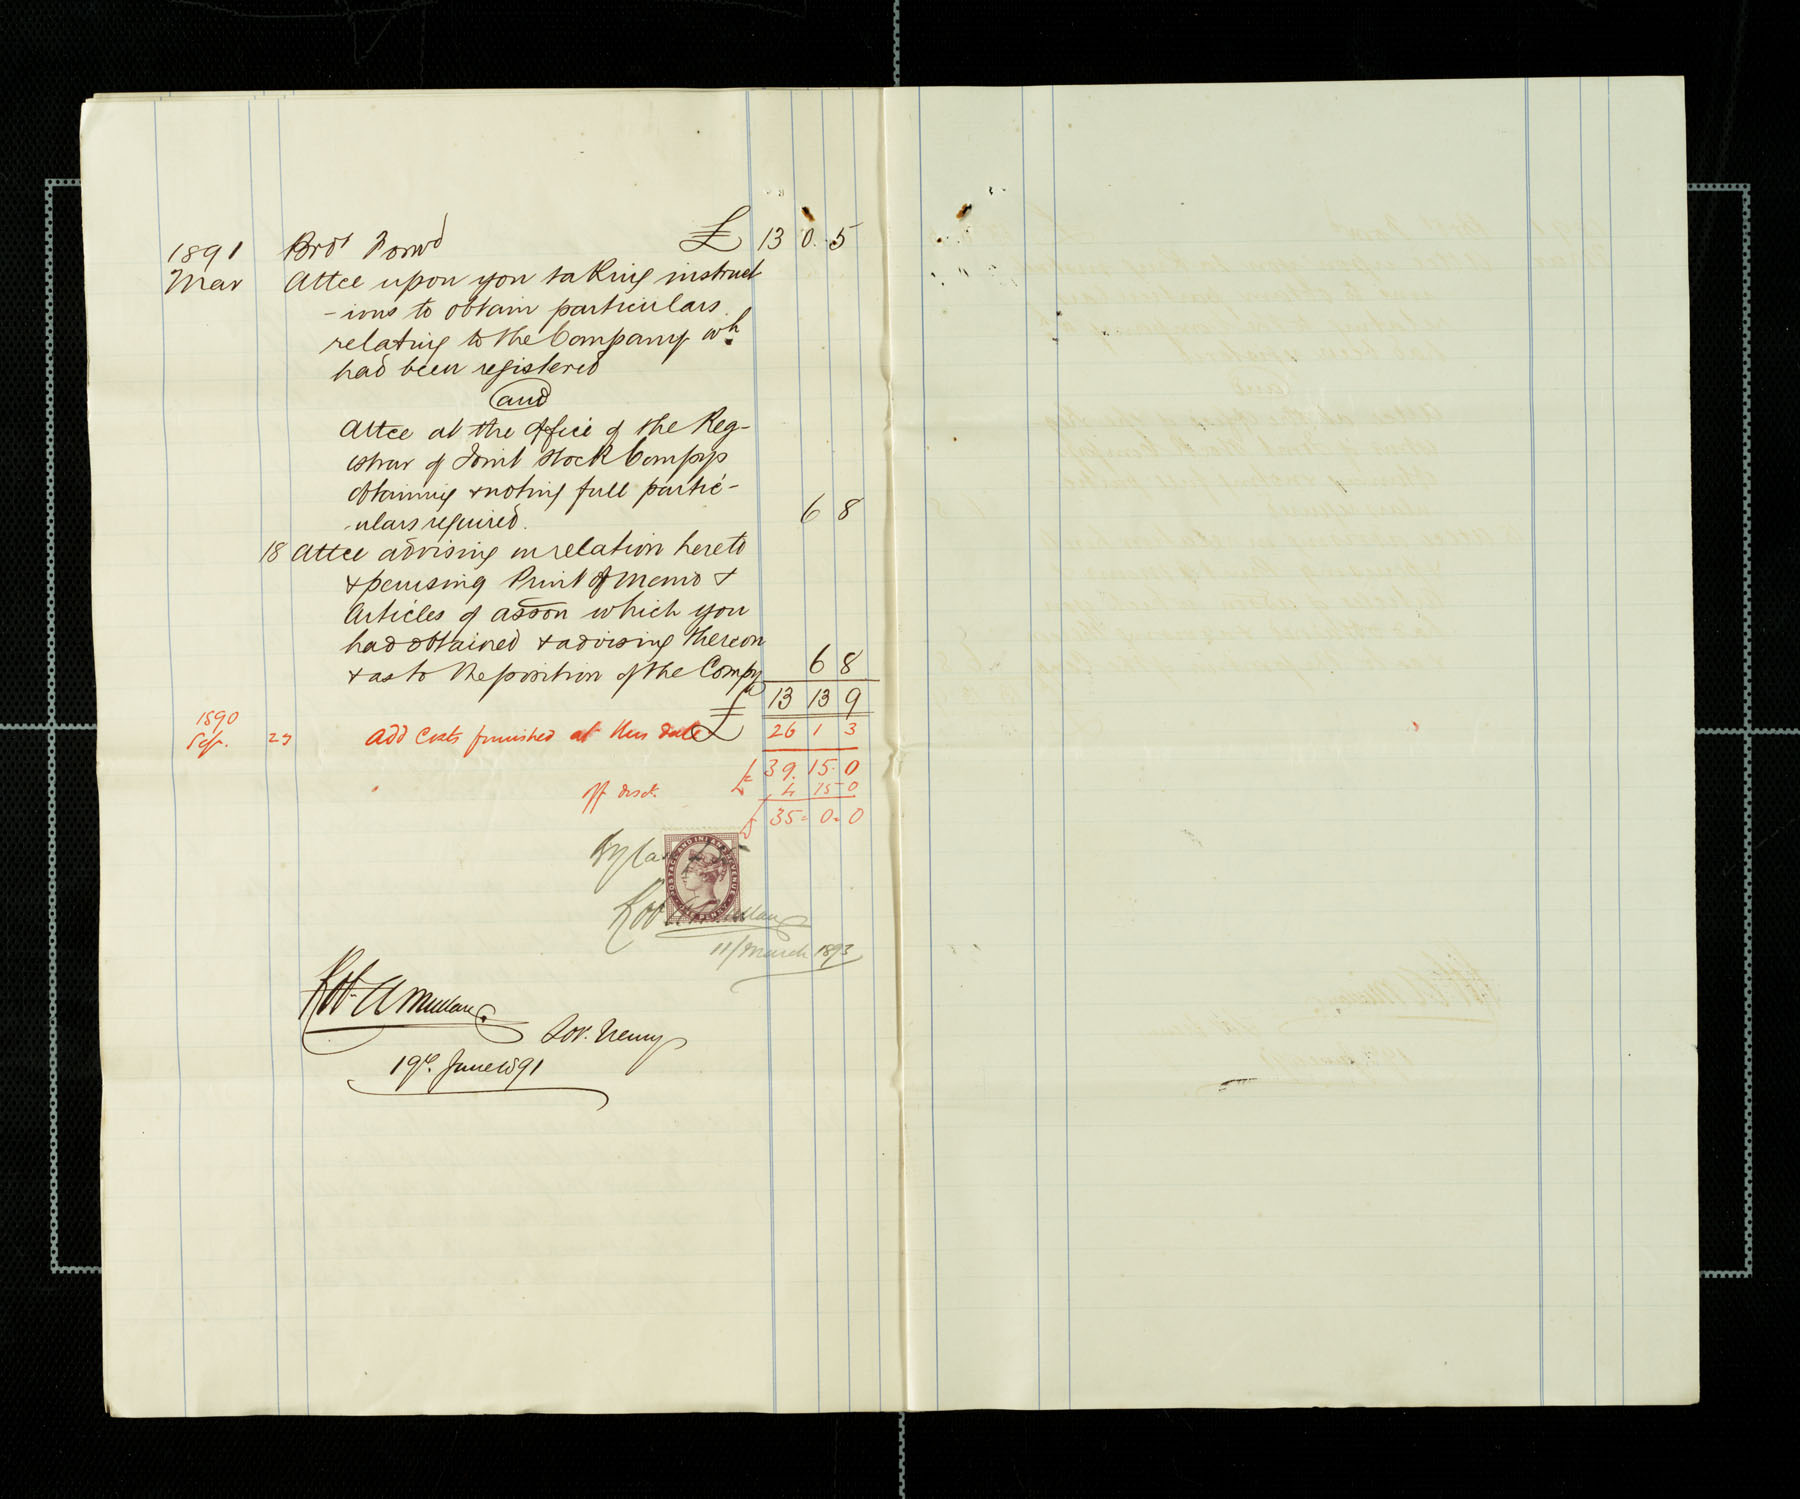 £ 13 0. 5
1891 Brot Forwd
Mar Attce upon you taking instruct
-ions to obtain particulars
relating to the Company wh
had been registered
and
Attce at the Office of the Reg-
istrar of Joint Stock Compys
obtaining & noting full partic-
-ulars required. 6 8
18 Attce advising in relation hereto
& perusing Print of Memo &
Articles of Asson which you
had obtained & advising thereon
& as to the position of the Compy 6 8
£ 13 13 9
1890
Sep. 23 Add Costs furnished at this date 26 1 3
£ 39. 15. 0
off disct. 4 15 0
£ 35 = 0 = 0
By
POSTAGE AND INLAND REVENUE
ONE PENNY
Robt A Mullan
11/March 1893
Robt A Mullan
Sor. Newry
19th June 1891